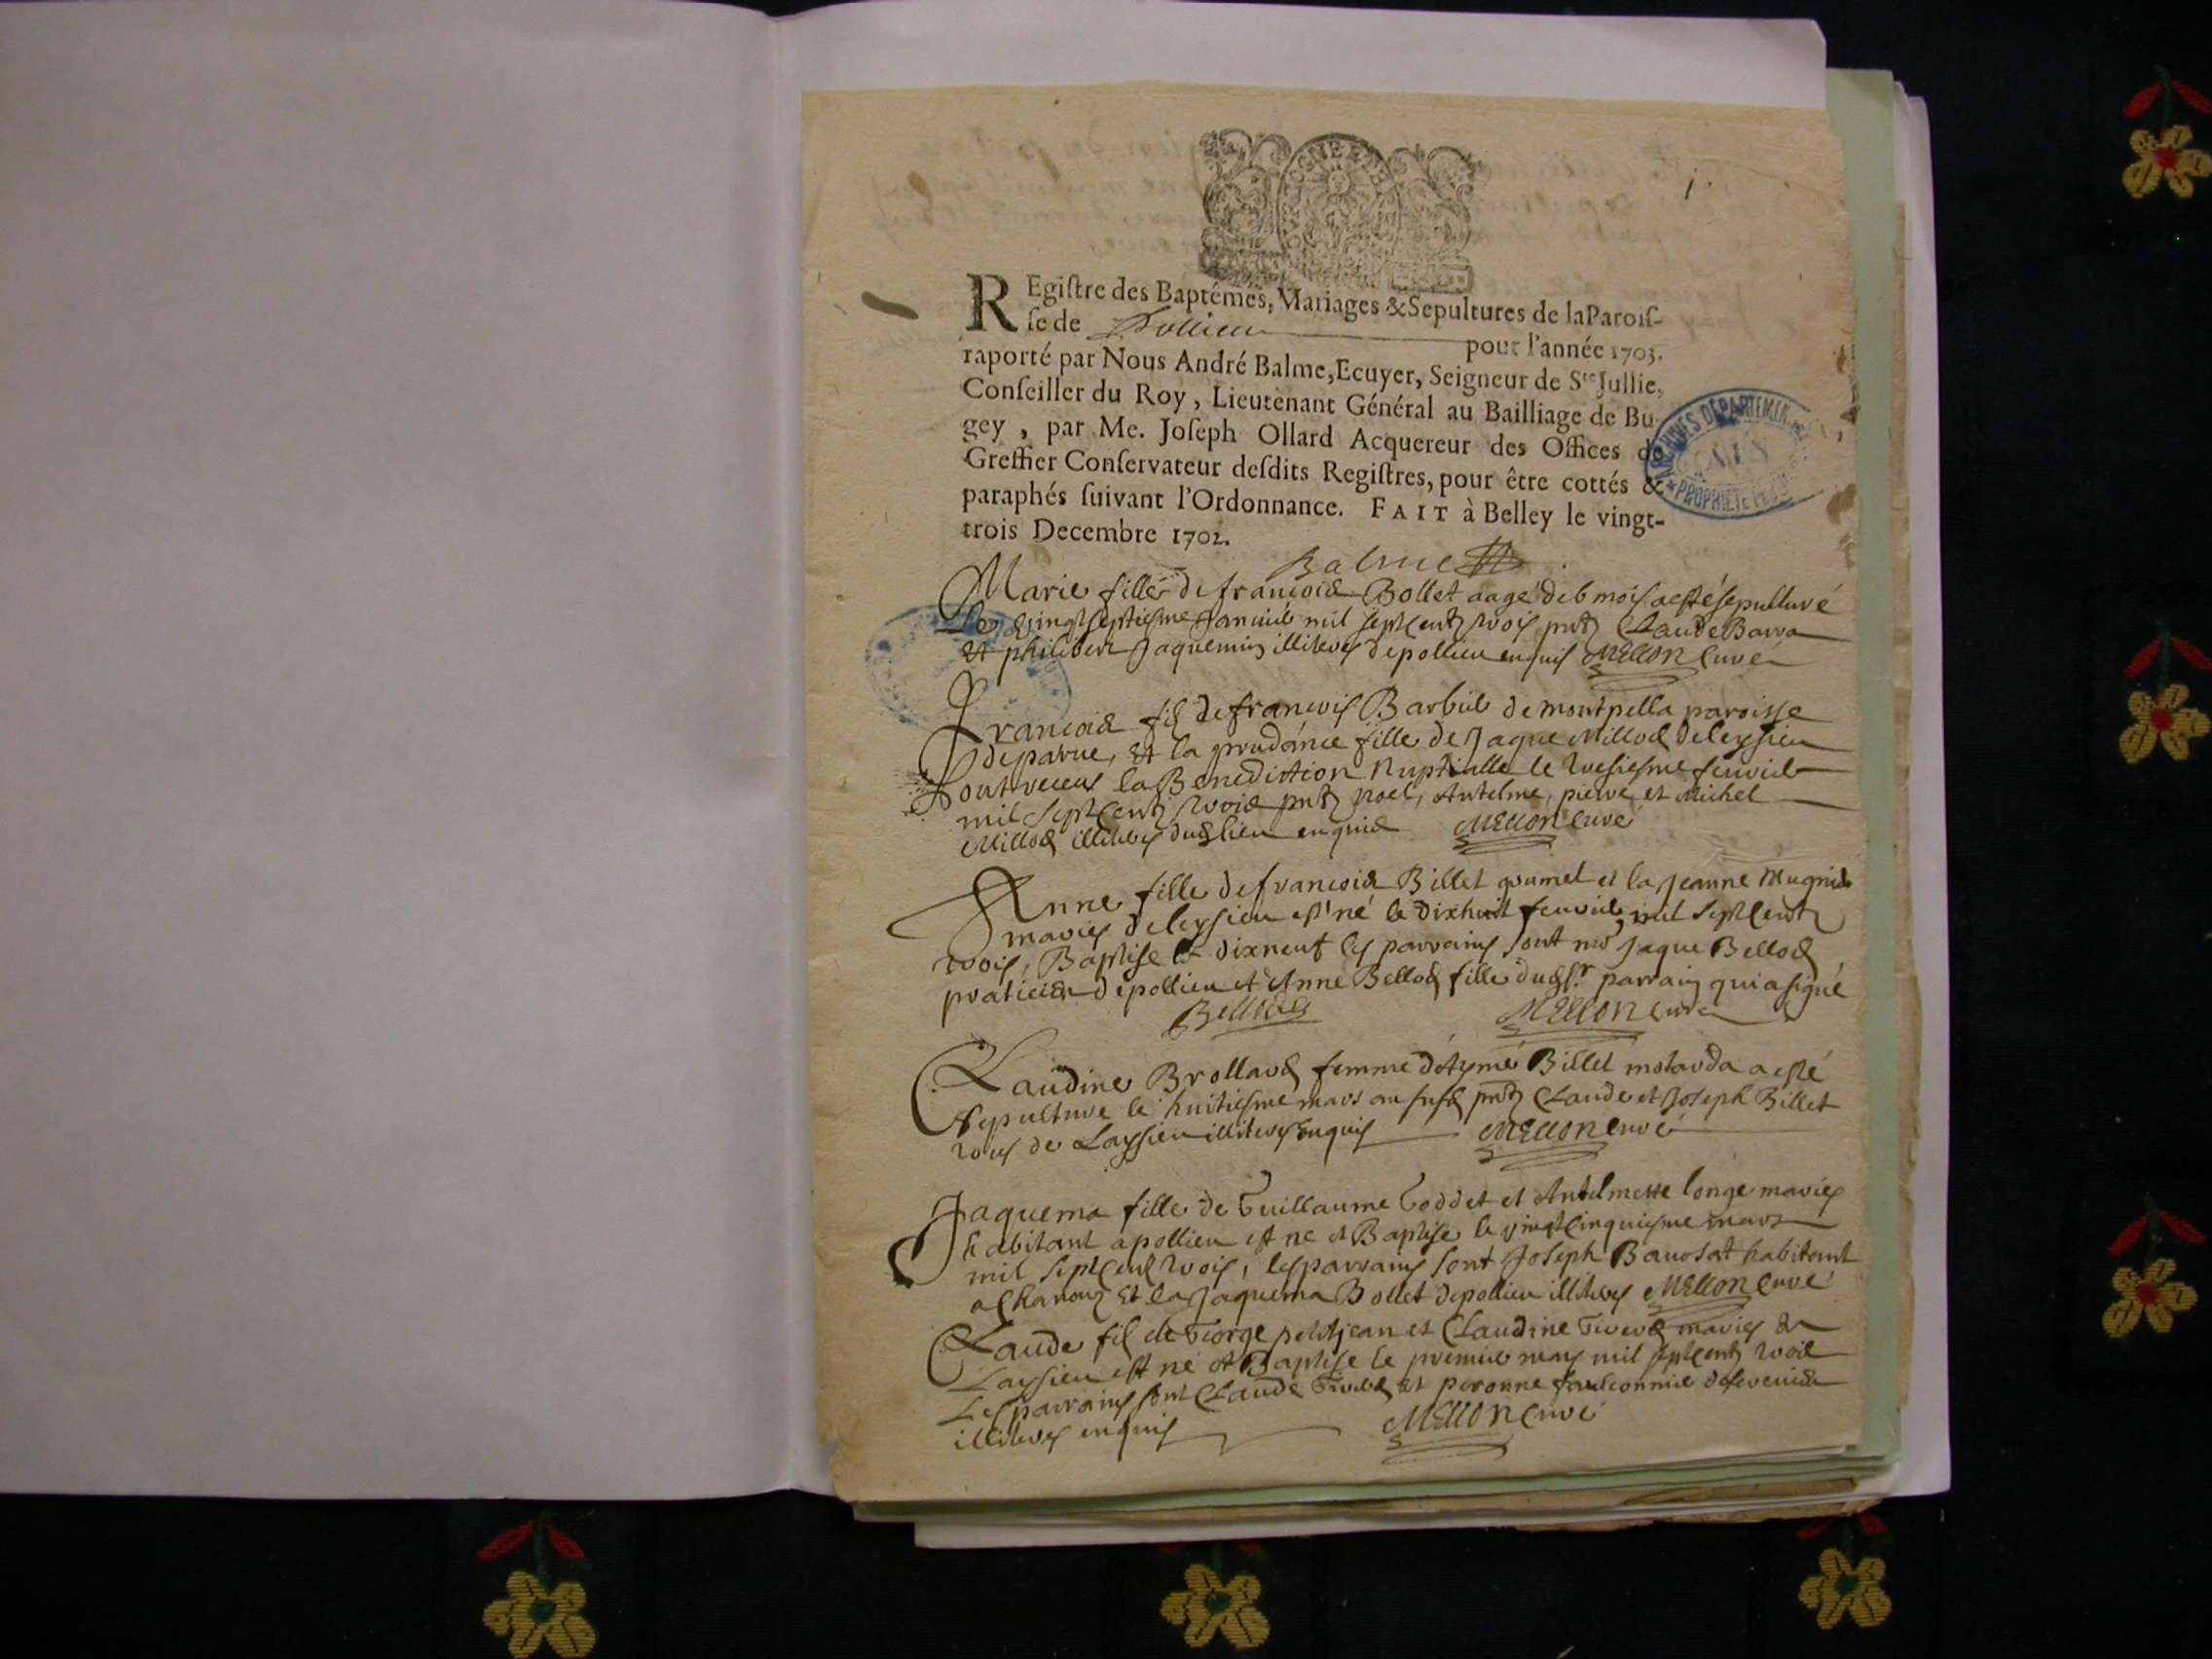 BOURGOGNE
1.
REgiſtre des Baptêmes, Mariages & Sepultures de la Paroiſ-
ſe de Pollieu pour l'année 1703.
raporté par Nous André Balme, Ecuyer, Seigneur de Ste Jullie,
Conſeiller du Roy, Lieutenant Général au Bailliage de Bu-
gey, par Me. Joſeph Ollard Acquereur des Offices de
Greffier Conſervateur deſdits Regiſtres, pour être cottés &
paraphés ſuivant l'Ordonnance. FAIT à Belley le vingt-
trois Decembre 1702.
ARCHIVES DÉPARTEMEN
AIN
PROPRIÉTÉ
Balme
Marie fille de francois Bollet aagé de 6 mois a esté sepulturé
Le vingt septiesme Janvier mil sept cent trois pnts Claude Barra
et philibert Jaquemin illiteres de pollieu enquis Mellon Curé
Francois fil de francois Barbier de montpella paroisse
de parve, et la prudance fille de Jaque Millod de leysieu
ont receus la Benediction Nuptialle le tresiesme feuvrier
mil sept cent trois pnts noel, Antelme, pierre et Michel
Millod illiteres dud lieu enquis Mellon Curé
Anne fille de francois Billet grumel et la Jeanne Mugnier
mariés de leysieu est né le dixhuit feuvrier mil sept cent
trois, Baptise le dixneuf les parrains sont mr Jaque Bellod
praticien de pollieu et Anne Bellod fille dud sr. parrain qui a signé
Bellod Mellon Curé
Claudine Brollard femme d'Aymé Billet motarda a esté
sepulture le huitiesme mars an susd pnts Claude et Joseph Billet
tous de Laysieu illiteres enquis Mellon Curé
Jaquema fille de Guillaume Goddet et Antelmette longe mariés
habitant a pollieu est né et Baptise le vingt cinquiesme mars
mil sept cent trois, les parrains sont Joseph Bavosat habitant
a Chanaz et la Jaquema Bollet de pollieu illiteres Mellon Curé
Claude fil de George petitjean et Claudine mariés de
Laysieu est né et Baptise le premier may mil sept cent trois
Les parrains sont Claude et peronne fauconnier
illiteres enquis Mellon Curé